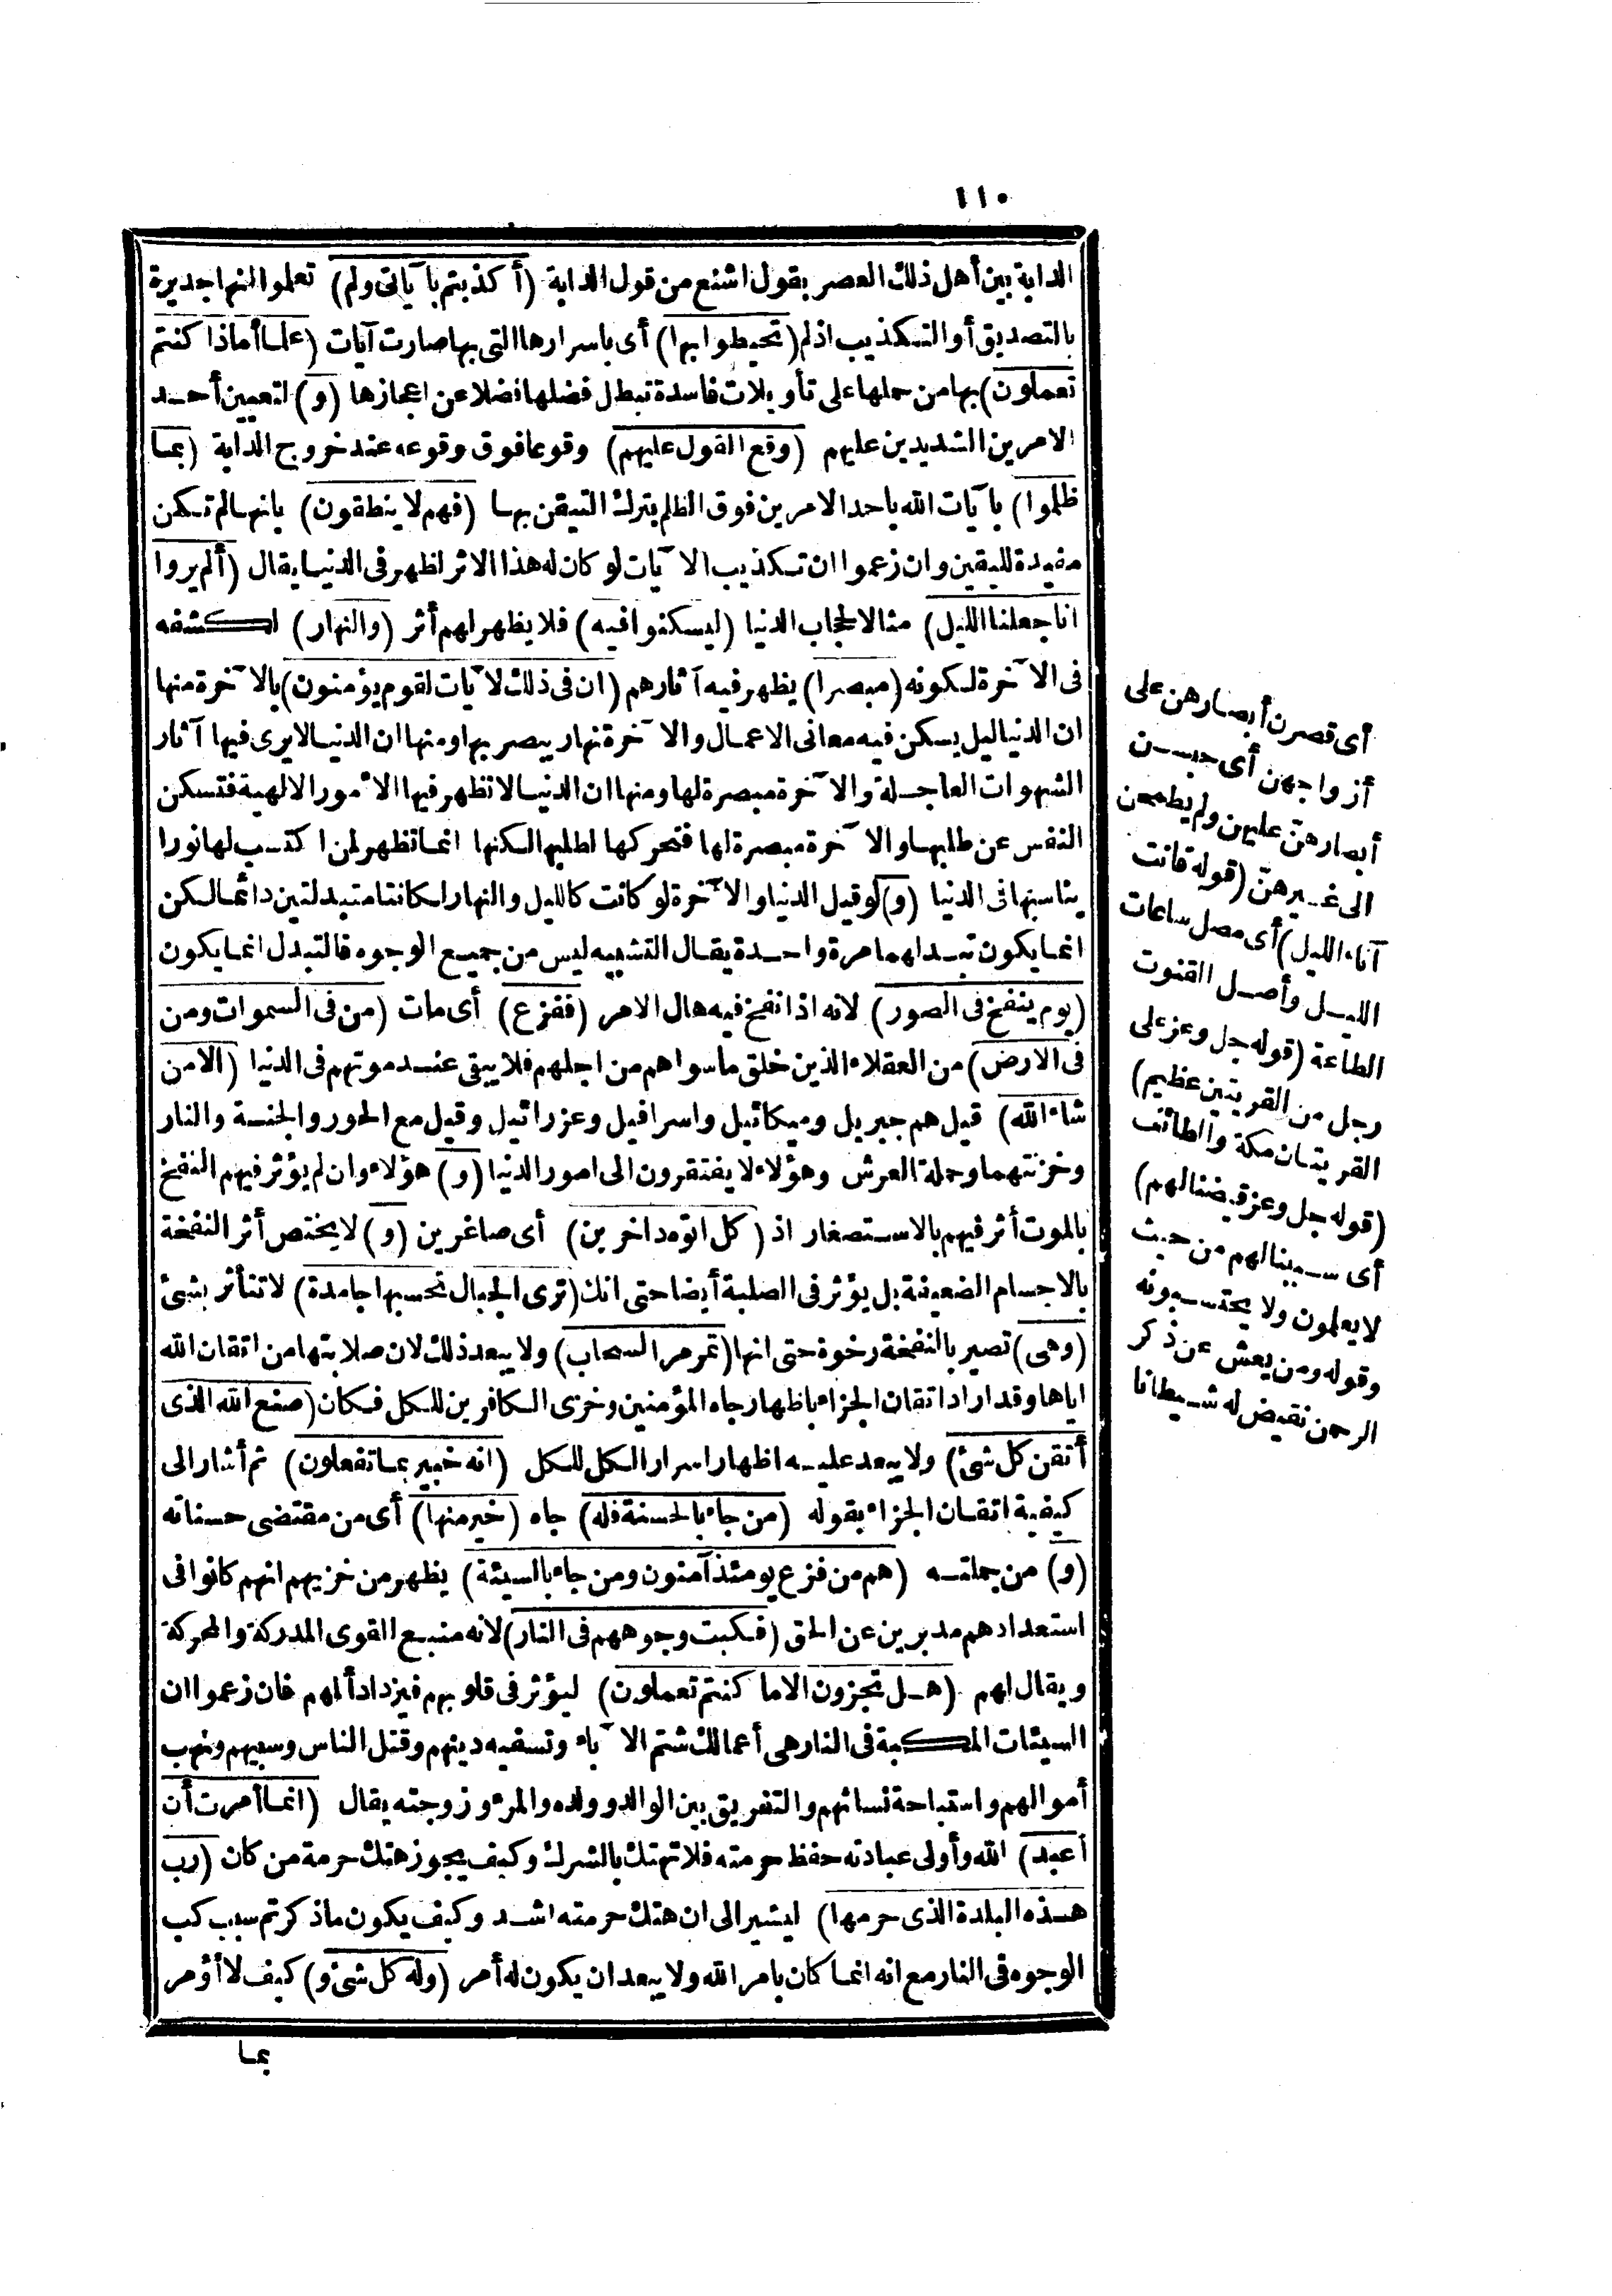 ١١٠
الدابة بين أهل ذلك العصر بقول اشنع من قول الدابة (أكذبتم بآياتى ولم) تعلموا انها جديرة
بالتصديق أو التكذيب اذ لم (تحيطوا بها) أى باسرارها التى بها صارت آيات (علما أماذا كنتم
تعملون) بها من حملها على تأويلات فاسدة تبطل فضلها فضلا عن اعجازها (و) لتعيين أحد
الامرين الشديدين عليهم (وقع القول عليهم) وقوعا فوق وقوعه عند خروج الدابة (بما
ظلموا) بآيات الله باحد الامرين فوق الظلم بترك التيقن بها (فهم لا ينطقون) بانها لم تكن
مفيدة لليقين وان زعموا ان تكذيب الآيات لو كان له هذا الاثر لظهر فى الدنيا يقال (ألم يروا
انا جعلنا الليل) مثالا لحجاب الدنيا (ليسكنوا فيه) فلا يظهر لهم أثر (والنهار) لكشفه
فى الآخرة لكونه (مبصرا) يظهر فيه آثارهم (ان فى ذلك لآيات لقوم يؤمنون) بالآخرة منها
ان الدنيا ليل يسكن فيه معانى الاعمال والآخرة نهار يبصر بها ومنها ان الدنيا لا يرى فيها آثار
الشهوات العاجلة والآخرة مبصرة لها ومنها ان الدنيا لا تظهر فيها الامور الالهية فتسكن
النفس عن طلبها والآخرة مبصرة لها فتحركها لطلبها لكنها انما تظهر لمن اكتسب لها نورا
يناسبها فى الدنيا (و) لو قيل الدنيا والآخرة لو كانت كالليل والنهار لكانتا متبدلتين دائما لكن
انما يكون تبدلهما مرة واحدة يقال التشبيه ليس من جميع الوجوه فالتبدل انما يكون
(يوم ينفخ فى الصور) لانه اذا نفخ فيه هال الامر (ففزع) أى مات (من فى السموات ومن
فى الارض) من العقلاء الذين خلق ما سواهم من اجلهم فلا يبقى عند موتهم فى الدنيا (الا من
شاء الله) قيل هم جبريل وميكائيل واسرافيل وعزرائيل وقيل مع الحور والجنة والنار
وخزنتهما وحملة العرش وهؤلاء لا يفتقرون الى امور الدنيا (و) هؤلاء وان لم يؤثر فيهم النفخ
بالموت أثر فيهم بالاستصغار اذ (كل اتوه داخرين) أى صاغرين (و) لا يختص أثر النفخة
بالاجسام الضعيفة بل يؤثر فى الصلبة أيضا حتى انك (ترى الجبال تحسبها جامدة) لا تتأثر بشئ
(وهى) تصير بالنفخة رخوة حتى انها (تمر مر السحاب) ولا يبعد ذلك لان صلابتها من اتقان الله
اياها وقد اراد اتقان الجزاء باظهار جاه المؤمنين وخزى الكافرين للكل فكان (صنع الله الذى
أتقن كل شئ) ولا يبعد عليه اظهار اسرار الكل للكل (انه خبير بما تفعلون) ثم أشار الى
كيفية اتقان الجزاء بقوله (من جاء بالحسنة فله) جاه (خير منها) أى من مقتضى حسناته
(و) من جملته (هم من فزع يومئذ آمنون ومن جاء بالسيئة) يظهر من خزيهم انهم كانوا فى
استعدادهم مدبرين عن الحق (فكبت وجوههم فى النار) لانه منبع القوى المدركة والمحركة
ويقال لهم (هل تجزون الا ما كنتم تعملون) ليؤثر فى قلوبهم فيزداد ألمهم فان زعموا ان
السيئات المكبة فى النار هى أعمالك شتم الآباء وتسفيه دينهم وقتل الناس وسبيهم ونهب
أموالهم واستباحة نسائهم والتفريق بين الوالد وولده والمرء وزوجته يقال (انما أمرت أن
أعبد) الله وأولى عبادته حفظ حرمته فلا تهتك بالشرك وكيف يجوز هتك حرمة من كان (رب
هذه البلدة الذى حرمها) ليشير الى ان هتك حرمته اشد وكيف يكون ما ذكرتم سبب كب
الوجوه فى النار مع انه انما كان بامر الله ولا يبعد ان يكون له أمر (وله كل شئ و) كيف لا أؤمر
بما
أى قصرن أبصارهن على
أزواجهن أى حبسن
أبصارهنّ عليهن ولم يطمحن
الى غيرهنّ (قوله قانت
آناء الليل) أى مصل ساعات
الليل وأصل القنوت
الطاعة (قوله جل وعز على
رجل من القريتين عظيم)
القريتان مكة والطائف
(قوله جل وعز قيضنا لهم)
أى سببنا لهم من حيث
لا يعلمون ولا يحتسبونه
وقوله ومن يعش عن ذكر
الرحمن نقيض له شيطانا